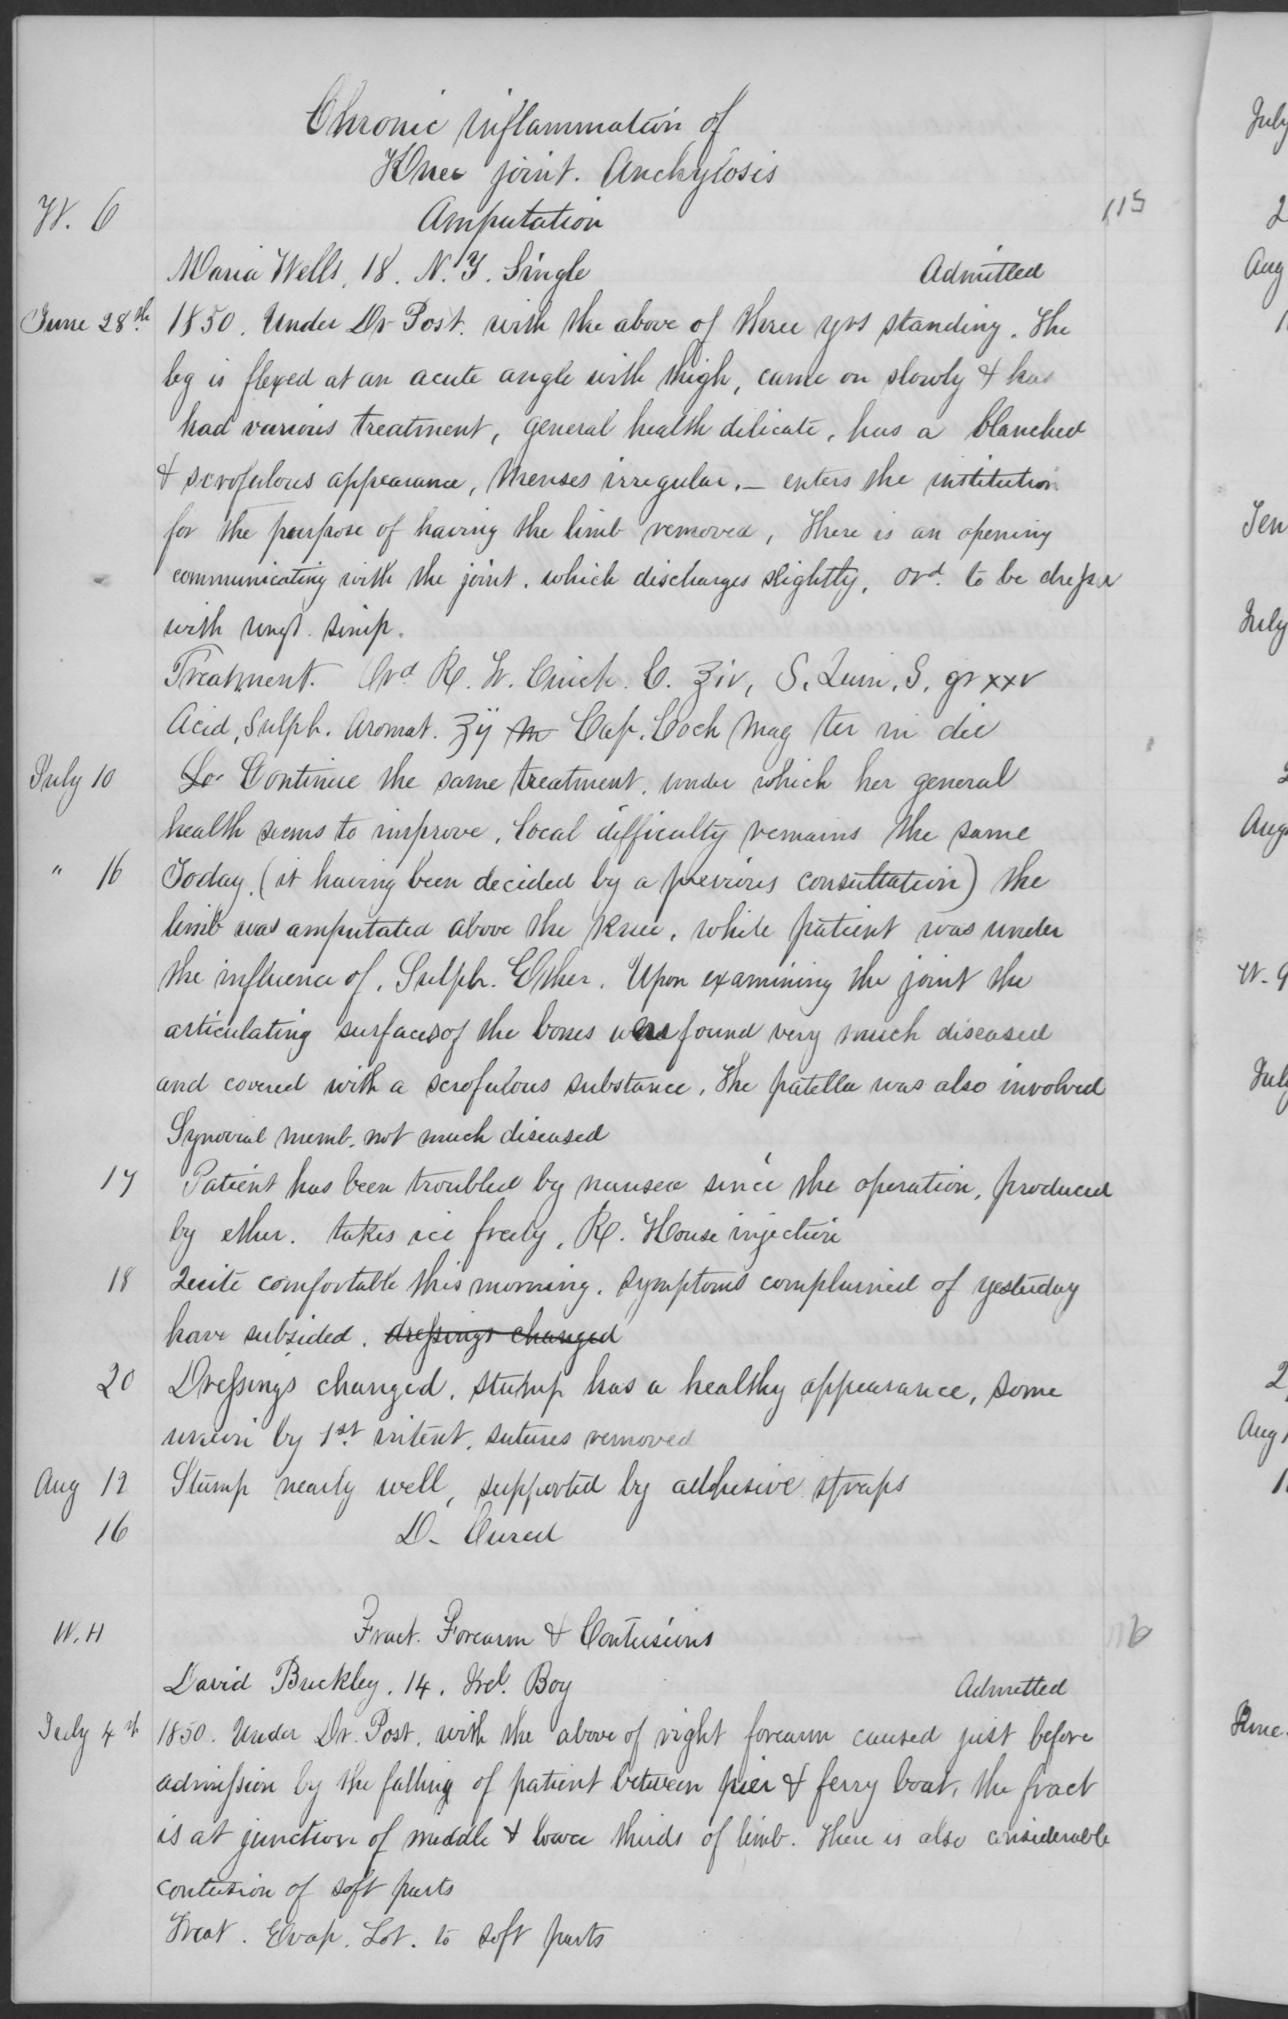 Chronic inflammation of
Knee joint. Anchylosis
W. 6 Amputation 115
Maria Wells, 18. N.Y. Single Admitted
June 28th 1850. Under Dr Post. with the above of three yrs standing. The
leg is flexed at an acute angle with thigh, came on slowly & has
had various treatment, general health delicate, has a blanched
& scrofulous appearance, Menses irregular. — enters the institution
for the purpose of having the limb removed, There is an opening
communicating with the joint. which discharges slightly. Ord. to be dressd
with ungt. simp.
Treatment. Ord R. Tr. Cinch. C. ℥iv, S. Quin. S. gr xxv
Acid, Sulph. Aromat. ʒij m Cap. Coch Mag ter in die
July 10 Continue the same treatment. under which her general
health seems to improve. Local difficulty remains the same
" 16 Today. (it having been decided by a previous consultation) the
limb was amputated above the knee. while patient was under
the influence of. Sulph. Ether. Upon examining the joint the
articulating surfaces of the bones were found very much diseased
and covered with a scrofulous substance. The patella was also involved
Synovial memb. not much diseased
17 Patient has been troubled by nausea since the operation, produced
by ether. takes ice freely, R. House injection
18 Quite comfortable this morning. symptoms complained of yesterday
have subsided. dressings changed
20 Dressings changed. stump has a healthy appearance, some
union by 1st intent. sutures removed
Aug 12 Stump nearly well, supported by adhesive straps
16 D- Cured
W. H Fract. Forearm & Contusions 116
David Buckley. 14. Irel. Boy Admitted
July 4th 1850. Under Dr. Post. with the above of right forearm caused just before
admission by the falling of patient between pier & ferry boat. the fract
is at junction of middle & lower thirds of limb. There is also considerable
contusion of soft parts
Treat. Evap. Lot. to soft parts
July
2
Aug
1
July
Aug
W. 9
July
2
Aug
1
June